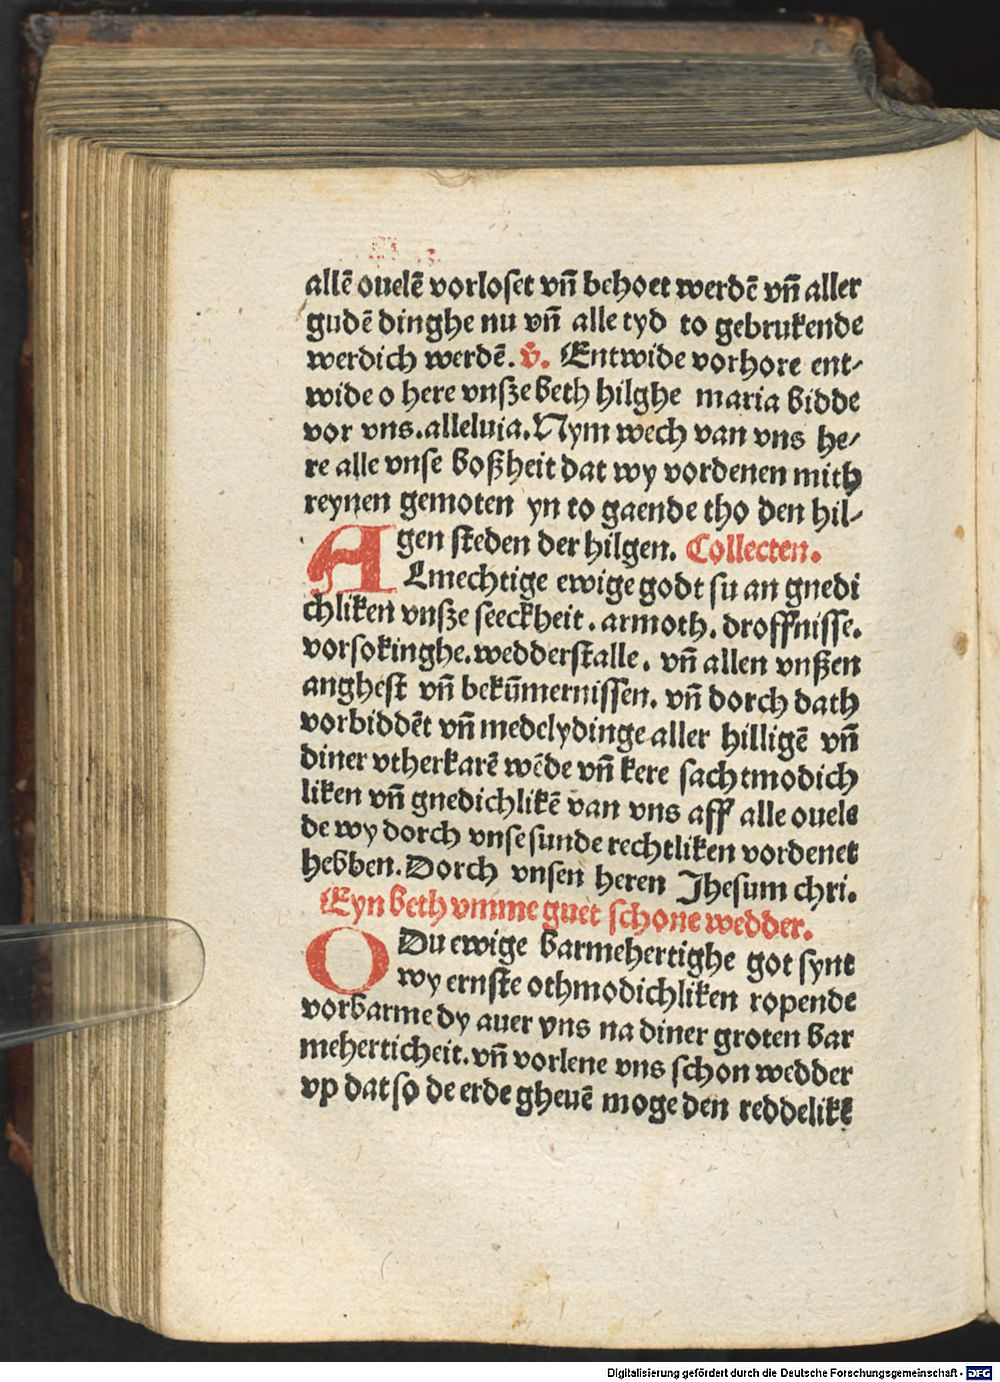 allē ouelē vorloset vn̄ behoet werdē vn̄ aller
gudē dinghe nu vn̄ alle tyd to gebrukende
werdich werdē. v̄. Entwide vorhore ent-
wide o here vnsze beth hilghe maria bidde
vor vns. alleluia. Nym wech van vns he-
re alle vnse boßheit dat wy vordenen mith
reynen gemoten yn to gaende tho den hil-
gen steden der hilgen. Collecten.
ALmechtige ewige godt su an gnedi
chliken vnsze seeckheit. armoth. droffnisse.
vorsokinghe. wedderstalle. vn̄ allen vnßen
anghest vn̄ bekūmernissen. vn̄ dorch dath
vorbiddēt vn̄ medelydinge aller hilligē vn̄
diner vtherkarē wēde vn̄ kere sachtmodich
liken vn̄ gnedichlikē van vns aff alle ouels
de wy dorch vnse sunde rechtliken vordenet
hebben. Dorch vnsen heren Jhesum chri.
Eyn beth vmme guet schone wedder.
O Du ewige barmehertighe got synt
wy ernste othmodichliken ropende
vorbarme dy auer vns na diner groten bar
meherticheit. vn̄ vorlene vns schon wedder
vp dat so de erde gheuē moge den reddelikē
Digitalisierung gefördert durch die Deutsche Forschungsgemeinschaft - DFG